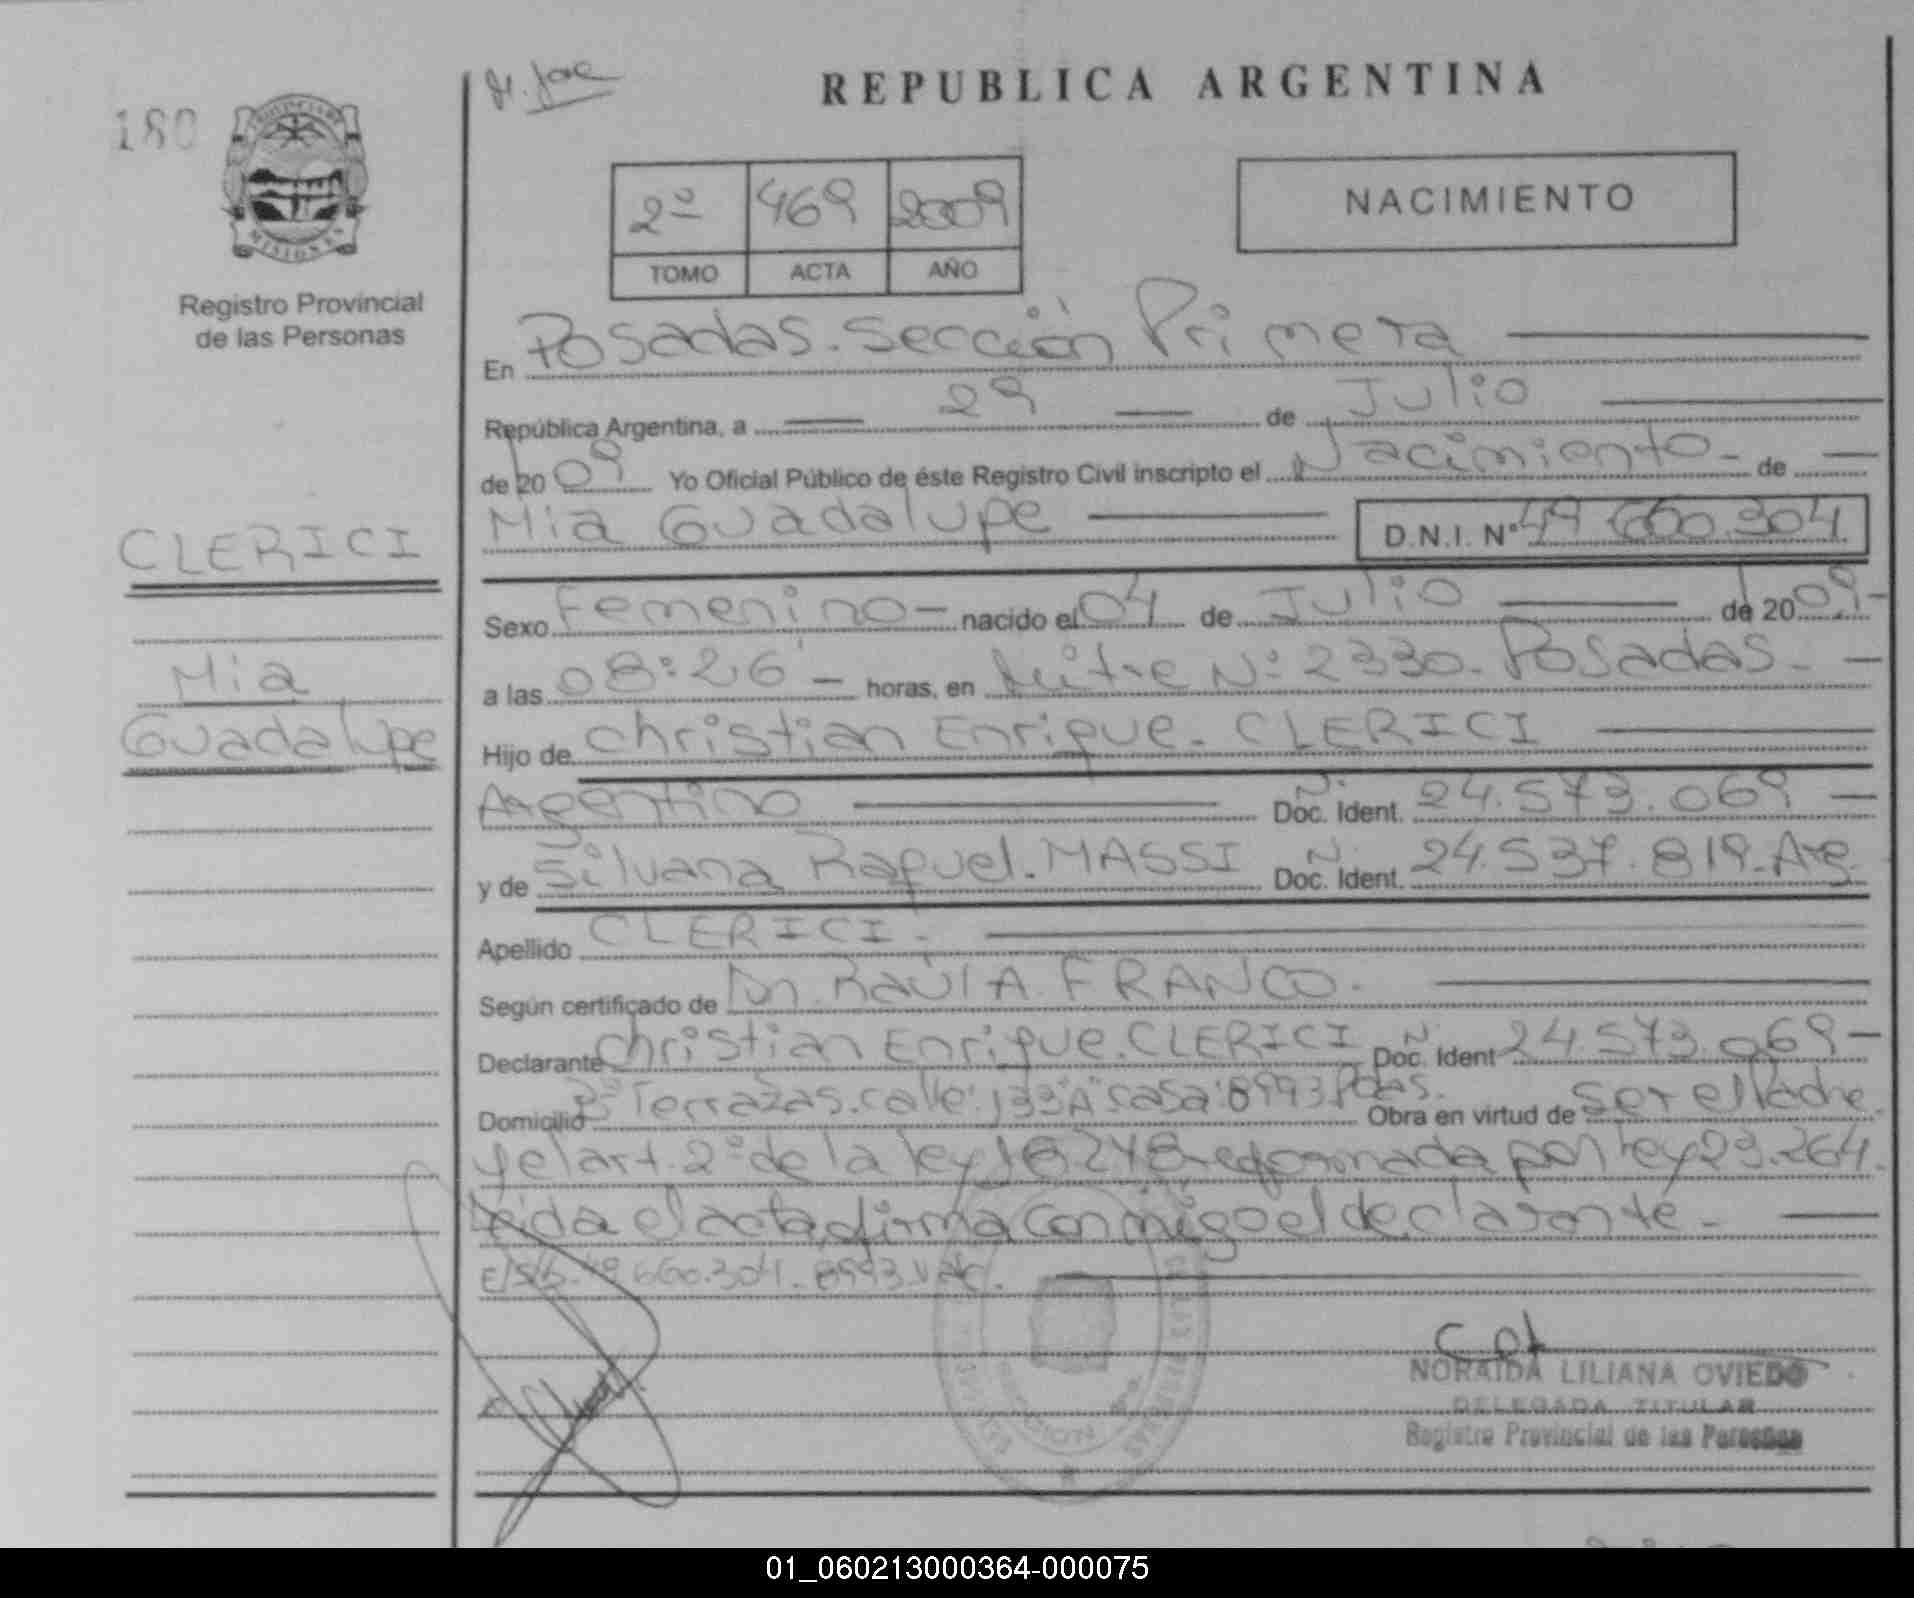 180
PROVINCIA DE
MISIONES
Registro Provincial
de las Personas
CLERICI
Mia
Guadalupe
REPUBLICA ARGENTINA
2º 469 2009
TOMO ACTA AÑO
NACIMIENTO
En Posadas. Sección Primera
República Argentina, a 29 de Julio
de 2009 Yo Oficial Público de éste Registro Civil inscripto el Nacimiento - de
Mia Guadalupe D.N.I. Nº 49.660.304
Sexo Femenino - nacido el 04 de Julio de 2009 -
a las 08:26 - horas, en Mitre Nº: 2330. Posadas. -
Hijo de Christian Enrique. CLERICI
Argentino Nº. Doc. Ident. 24.573.069 -
y de Silvana Raquel. MASSI N. Doc. Ident. 24.537.819. Arg.
Apellido CLERICI.
Según certificado de Dr. Raúl A. FRANCO.
Declarante Christian Enrique. CLERICI N. Doc. Ident 24.573.069 -
Domicilio Terrazas. calle: 133 "A" casa: 8993 Pdas. Obra en virtud de ser el Padre
y el art. 2º de la ley 18248 reformada por ley 23.264.
Leída el acta, firma conmigo el declarante -
E/S/b. 49.660.304. 8993. Vale.
NORAIDA LILIANA OVIEDO
DELEGADA TITULAR
Registro Provincial de las Personas
01_060213000364-000075